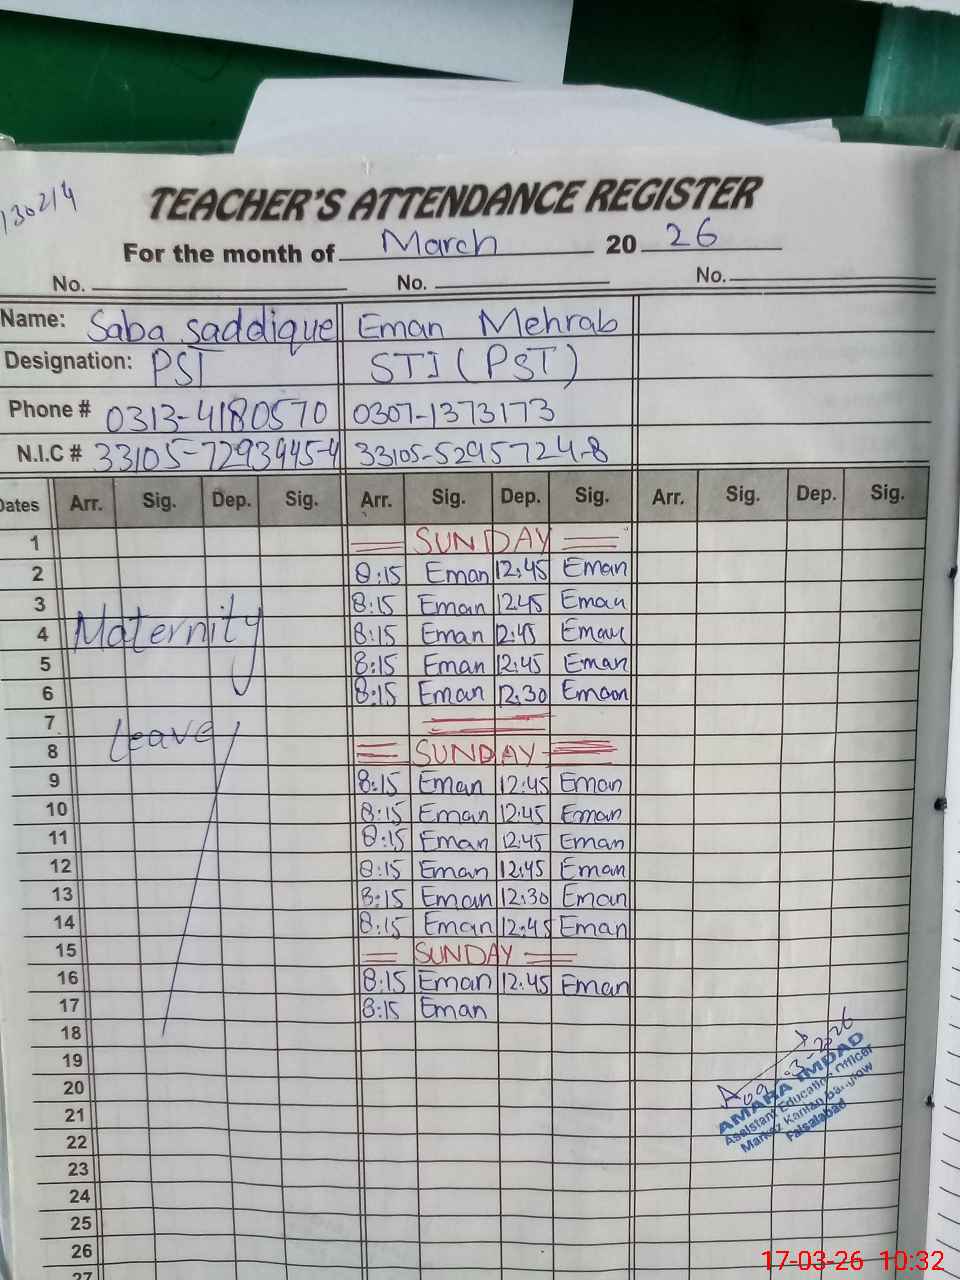 13021/4
TEACHER'S ATTENDANCE REGISTER
For the month of March 20 26
No. No. No.
Name: Saba saddique Eman Mehrab
Designation: PST STI (PST)
Phone # 0313-4180570 0307-1373173
N.I.C # 33105-7293945-4 33105-5295724-8
Dates Arr. Sig. Dep. Sig. Arr. Sig. Dep. Sig. Arr. Sig. Dep. Sig.
1 SUNDAY
2 8:15 Eman 12:45 Eman
3 8:15 Eman 12:45 Eman
4 Maternity 8:15 Eman 12:45 Eman
5 8:15 Eman 12:45 Eman
6 8:15 Eman 12:30 Eman
7
8 Leave SUNDAY
9 8:15 Eman 12:45 Eman
10 8:15 Eman 12:45 Eman
11 8:15 Eman 12:45 Eman
12 8:15 Eman 12:45 Eman
13 8:15 Eman 12:30 Eman
14 8:15 Eman 12:45 Eman
15 SUNDAY
16 8:15 Eman 12:45 Eman
17 8:15 Eman
18
19
20
21
22
23
24
25
26
27
AMARA IMDAD
Assistant Education Officer
Markaz
Faisalabad
17-03-26 10:32